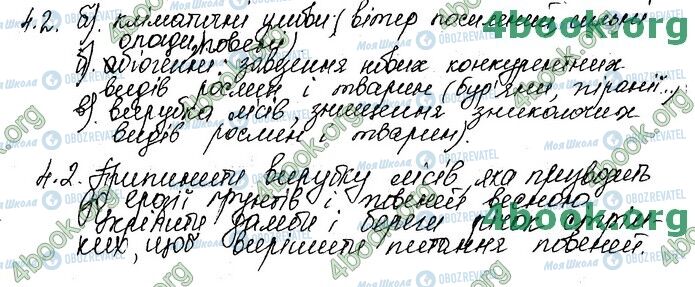 4.2. а). кліматичні умови (вітер посилений сильні
опади, повені)
б). абіогенні: завезення нових конкурентних
видів рослин і тварин (бур'яни, піранії...)
в). вирубка лісів, знищення зникаючих
видів рослин і тварин).
4.2. Припинити вирубку лісів, яка призводить
до ерозії ґрунтів і повеней весною.
Укріпити дамби і береги річок
ких, щоб вирішити питання повеней